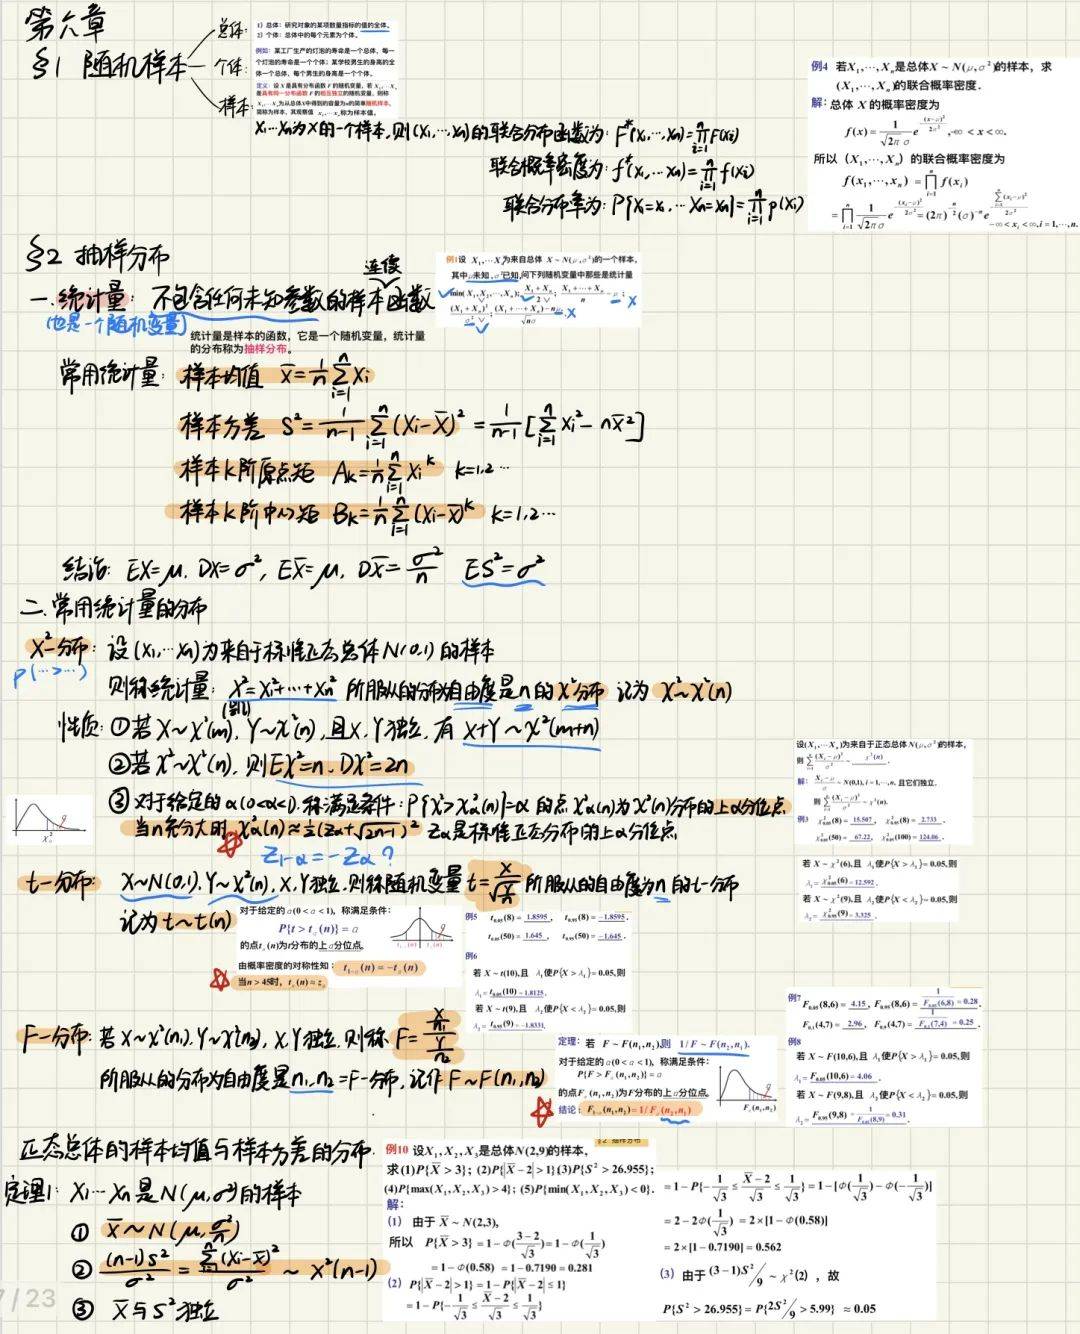 第六章
§1 随机样本
总体:
1）总体：研究对象的某项数量指标的值的全体。
2）个体：总体中的每个元素为个体。
个体:
例如：某工厂生产的灯泡的寿命是一个总体，每一
个灯泡的寿命是一个个体；某学校男生的身高的全
体一个总体，每个男生的身高是一个个体。
样本:
定义：设 X 是具有分布函数 F 的随机变量，若 X₁,…Xₙ
是具有同一分布函数 F 的相互独立的随机变量，则称
X₁,…Xₙ为从总体X中得到的容量为n的简单随机样本，
简称为样本，其观察值 x₁,…xₙ称为样本值。
X₁…Xₙ为X的一个样本,则(X₁,…,Xₙ)的联合分布函数为: F*(x₁,…,xₙ)=∏ᵢ₌₁ⁿF(xᵢ)
联合概率密度为: f*(x₁,…xₙ)=∏ᵢ₌₁ⁿ f(xᵢ)
联合分布率为: P{X₁=x₁…Xₙ=xₙ}=∏ᵢ₌₁ⁿ p(xᵢ)
例4 若X₁,…,Xₙ是总体X～N(μ,σ²)的样本，求
(X₁,…,Xₙ)的联合概率密度.
解:总体 X 的概率密度为
f(x)= 1/(√2π σ) e^(-(x-μ)²/2σ²), -∞ < x < ∞.
所以（X₁,…,Xₙ）的联合概率密度为
f(x₁,…,xₙ) =∏ᵢ₌₁ⁿ f(xᵢ)
=∏ᵢ₌₁ⁿ 1/(√2π σ) e^(-(xᵢ-μ)²/2σ²)=(2π)^(-n/2)(σ)^(-n) e^(-∑ᵢ₌₁ⁿ(xᵢ-μ)²/2σ²)
-∞ < xᵢ < ∞, i=1,…,n.
§2 抽样分布
连续
一.统计量: 不包含任何未知参数的样本函数
(也是一个随机变量)
统计量是样本的函数，它是一个随机变量，统计量
的分布称为抽样分布。
例1设 X₁,…Xₙ为来自总体 X～N(μ,σ²)的一个样本,
其中μ未知,σ²已知,问下列随机变量中那些是统计量
min(X₁,X₂,…,Xₙ); (X₁+Xₙ)/2; (X₁+…+Xₙ)/n - μ;
(X₁+Xₙ)²/σ²; ((X₁+…+Xₙ)-nμ)/(√n σ).
常用统计量: 样本均值 X̄=1/n ∑ᵢ₌₁ⁿXᵢ
样本方差 S²=1/(n-1) ∑ᵢ₌₁ⁿ(Xᵢ-X̄)²=1/(n-1)[∑ᵢ₌₁ⁿXᵢ²-nX̄²]
样本k阶原点矩 Aₖ=1/n ∑ᵢ₌₁ⁿXᵢᵏ k=1,2…
样本k阶中心矩 Bₖ=1/n ∑ᵢ₌₁ⁿ(Xᵢ-X̄)ᵏ k=1,2…
结论: EX=μ, DX=σ², EX̄=μ, DX̄=σ²/n ES²=σ²
二.常用统计量的分布
χ²-分布: 设(X₁,…Xₙ)为来自于标准正态总体N(0,1)的样本
P(…>…)
则称统计量: χ²=X₁²+…+Xₙ² 所服从的分布为自由度是n的χ²分布 记为 χ²~χ²(n)
性质: ①若 X~χ²(m), Y~χ²(n),且X,Y独立,有 X+Y~χ²(m+n)
②若χ²~χ²(n),则Eχ²=n,Dχ²=2n
③对于给定的α(0<α<1),称满足条件: P{χ²>χ²α(n)}=α 的点χ²α(n)为χ²(n)分布的上α分位点
当n充分大时 χ²α(n)≈½(Zα+√2n-1)² Zα是标准正态分布的上α分位点
Z₁₋α=-Zα?
设(X₁,…Xₙ)为来自于正态总体N(μ,σ²)的样本,
则 ∑ᵢ₌₁ⁿ(Xᵢ-μ)²/σ² ~ χ²(n).
解: (Xᵢ-μ)/σ ~ N(0,1), i=1,…,n, 且它们独立.
则 ∑ᵢ₌₁ⁿ(Xᵢ-μ)²/σ² ~ χ²(n).
例3 χ²₀.₀₅(8)= 15.507 , χ²₀.₉₅(8)= 2.733 .
χ²₀.₀₅(50)= 67.22, χ²₀.₀₅(100)=124.06.
若 X～χ²(6),且 λ₁使P{X>λ₁}=0.05,则
λ₁=χ²₀.₀₅(6)=12.592 .
若 X～χ²(9),且 λ₂使P{X<λ₂}=0.05,则
λ₂=χ²₀.₉₅(9)=3.325 .
t-分布: X~N(0,1),Y~χ²(n),X,Y独立,则称随机变量 t=X/√(Y/n) 所服从的自由度为n的t-分布
记为 t~t(n)
对于给定的α(0<α<1)，称满足条件：
P{t>tα(n)}=α
的点tα(n)为t分布的上α分位点.
由概率密度的对称性知: t₁₋α(n)=-tα(n)
当n>45时，tα(n)≈zα
例5 t₀.₀₅(8)= 1.8595 , t₀.₉₅(8)=-1.8595 .
t₀.₀₅(50)=1.645 , t₀.₉₅(50)=-1.645 .
例6
若 X～t(10),且 λ₁使P{X>λ₁}=0.05,则
λ₁=t₀.₀₅(10)=1.8125 .
若 X～t(9),且 λ₂使P{X<λ₂}=0.05,则
λ₂=t₀.₉₅(9)=-1.8331.
F-分布: 若 X~χ²(n₁),Y~χ²(n₂),X,Y独立,则称 F=(X/n₁)/(Y/n₂)
所服从的分布为自由度是n₁,n₂=F-分布,记作 F~F(n₁,n₂)
定理：若 F～F(n₁,n₂),则 1/F～F(n₂,n₁).
对于给定的α(0<α<1)，称满足条件：
P{F>Fα(n₁,n₂)}=α
的点Fα(n₁,n₂)为F分布的上α分位点.
结论: F₁₋α(n₁,n₂)=1/Fα(n₂,n₁)
Fα(n₁,n₂)
例7
F₀.₀₅(8,6)= 4.15 , F₀.₉₅(8,6)= 1/F₀.₀₅(6,8) =0.28.
F₀.₁(4,7)= 2.96 , F₀.₉(4,7)= 1/F₀.₁(7,4) =0.25 .
例8
若 X～F(10,6),且 λ₁使P{X>λ₁}=0.05,则
λ₁=F₀.₀₅(10,6)=4.06 .
若 X～F(9,8),且 λ₂使P{X<λ₂}=0.05,则
λ₂=F₀.₉₅(9,8) = 1/F₀.₀₅(8,9) =0.31
正态总体的样本均值与样本方差的分布.
定理1: X₁…Xₙ是N(μ,σ²)的样本
① X̄~N(μ,σ²/n)
② (n-1)S²/σ²=∑ᵢ₌₁ⁿ(Xᵢ-X̄)²/σ² ~ χ²(n-1)
③ X̄与S²独立
§2 抽样分布
例10 设X₁,X₂,X₃是总体N(2,9)的样本,
求(1)P{X̄>3}; (2)P{|X̄-2|>1}(3)P{S²>26.955};
(4)P{max(X₁,X₂,X₃)>4}; (5)P{min(X₁,X₂,X₃)<0}.
解:
(1) 由于 X̄～N(2,3),
所以 P{X̄>3}=1-Φ((3-2)/√3)=1-Φ(1/√3)
=1-Φ(0.58) =1-0.7190=0.281
(2) P{|X̄-2|>1}=1-P{|X̄-2|≤1}
=1-P{-1/√3≤(X̄-2)/√3≤1/√3}
=1-P{-1/√3≤(X̄-2)/√3≤1/√3}=1-[Φ(1/√3)-Φ(-1/√3)]
=2-2Φ(1/√3) =2×[1-Φ(0.58)]
=2×[1-0.7190]=0.562
(3) 由于(3-1)S²/9～χ²(2)，故
P{S²>26.955}=P{2S²/9>5.99} ≈0.05
7/23